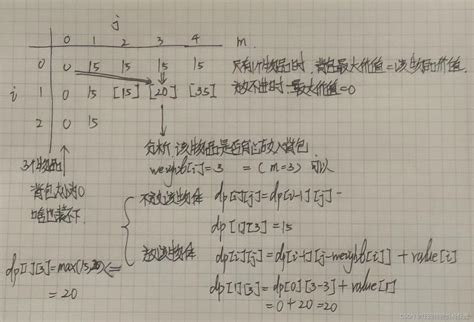 j
0 1 2 3 4 m.
0 0 15 15 15 15 只有1个物品时,背包最大价值=该物品价值.
放不进时最大价值=0
i 1 0 15 [15] [20] [35]
2 0 15
分析,该物品是否可放入背包
weight[i]=3 =(m=3) 可以
3个物品
背包大小为0
啥也装不下
不放该物体 dp[i][j]=dp[i-1][j]
dp[1][3]=15
放该物体 dp[i][j]=dp[i-1][j-weight[i]]+value[i]
dp[1][3]=max(15,20) <=
=20
dp[1][3]=dp[0][3-3]+value[1]
=0+20=20